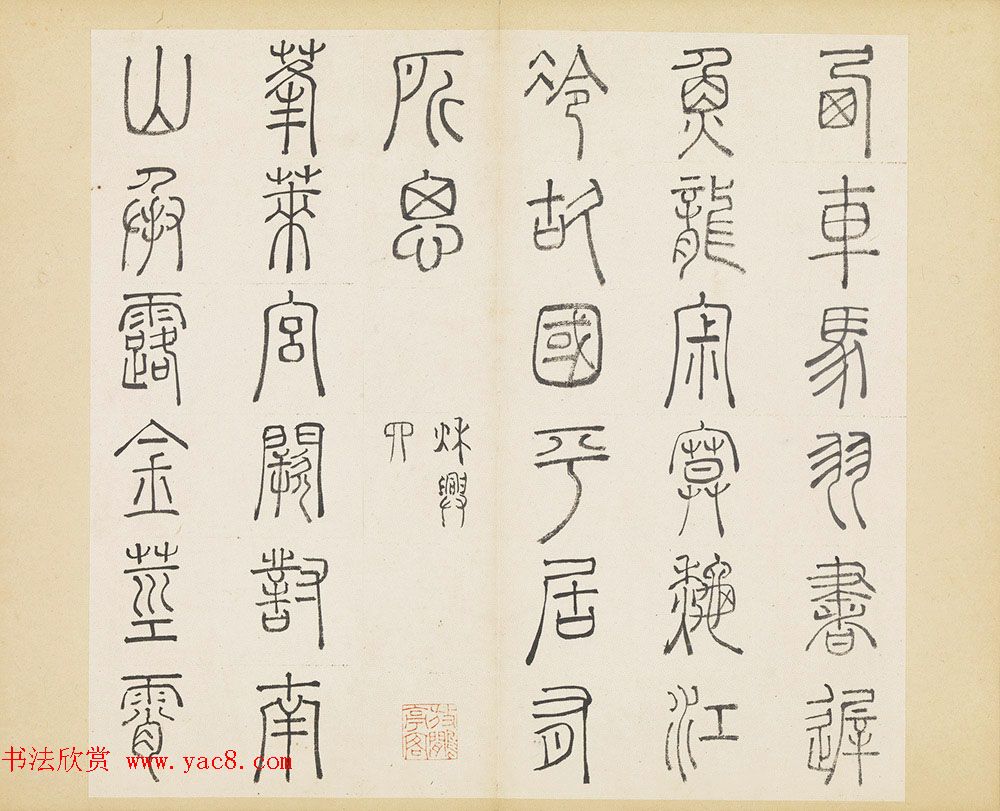 西車馬羽書遲
魚龍寂寞秋江
冷故國平居有
所思
秋興
四
蓬萊宮闕對南
山承露金莖霄
书法欣赏 www.yac8.com